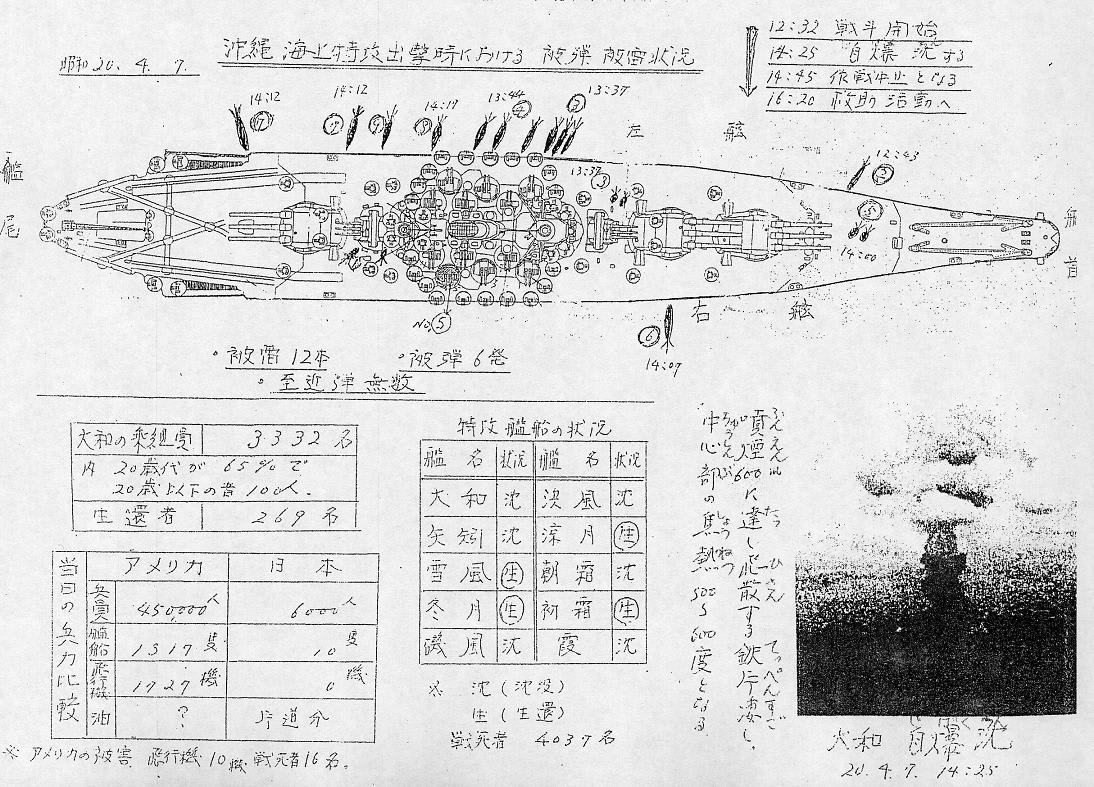 昭和20. 4. 7.
沖縄海上特攻出撃時における被弾被雷状況
12:32 戦斗開始
14:25 自爆沈する
14:45 作戦中止となる
16:20 救助活動へ
14:12
⑦
14:12
14:17
13:44
④
13:37
③
左舷
12:43
13:37
③
艦尾
艦首
⑤
14:00
No⑤
右舷
⑥
14:07
・被雷12本 ・被弾6発
・至近弾無数
大和の乗組員 3332名
内 20歳代が 65%で
20歳以下の者 100人.
生還者 269名
特攻艦船の状況
艦名 状況 艦名 状況
大和 沈 浜風 沈
矢矧 沈 涼月 生
雪風 生 朝霜 沈
冬月 生 初霜 生
磯風 沈 霞 沈
※ 沈(沈没)
生(生還)
戦死者 4037名
当日の兵力比較
アメリカ 日本
兵員 450,000人 6000人
艦船 1317隻 10隻
飛行機 1727機 0機
油 ? 片道分
※ アメリカの被害 飛行機10機 戦死者16名。
噴煙600mに達し飛散する鉄片凄し、
中心部の焦熱500〜600度となる
大和 自爆沈
20. 4. 7. 14:25